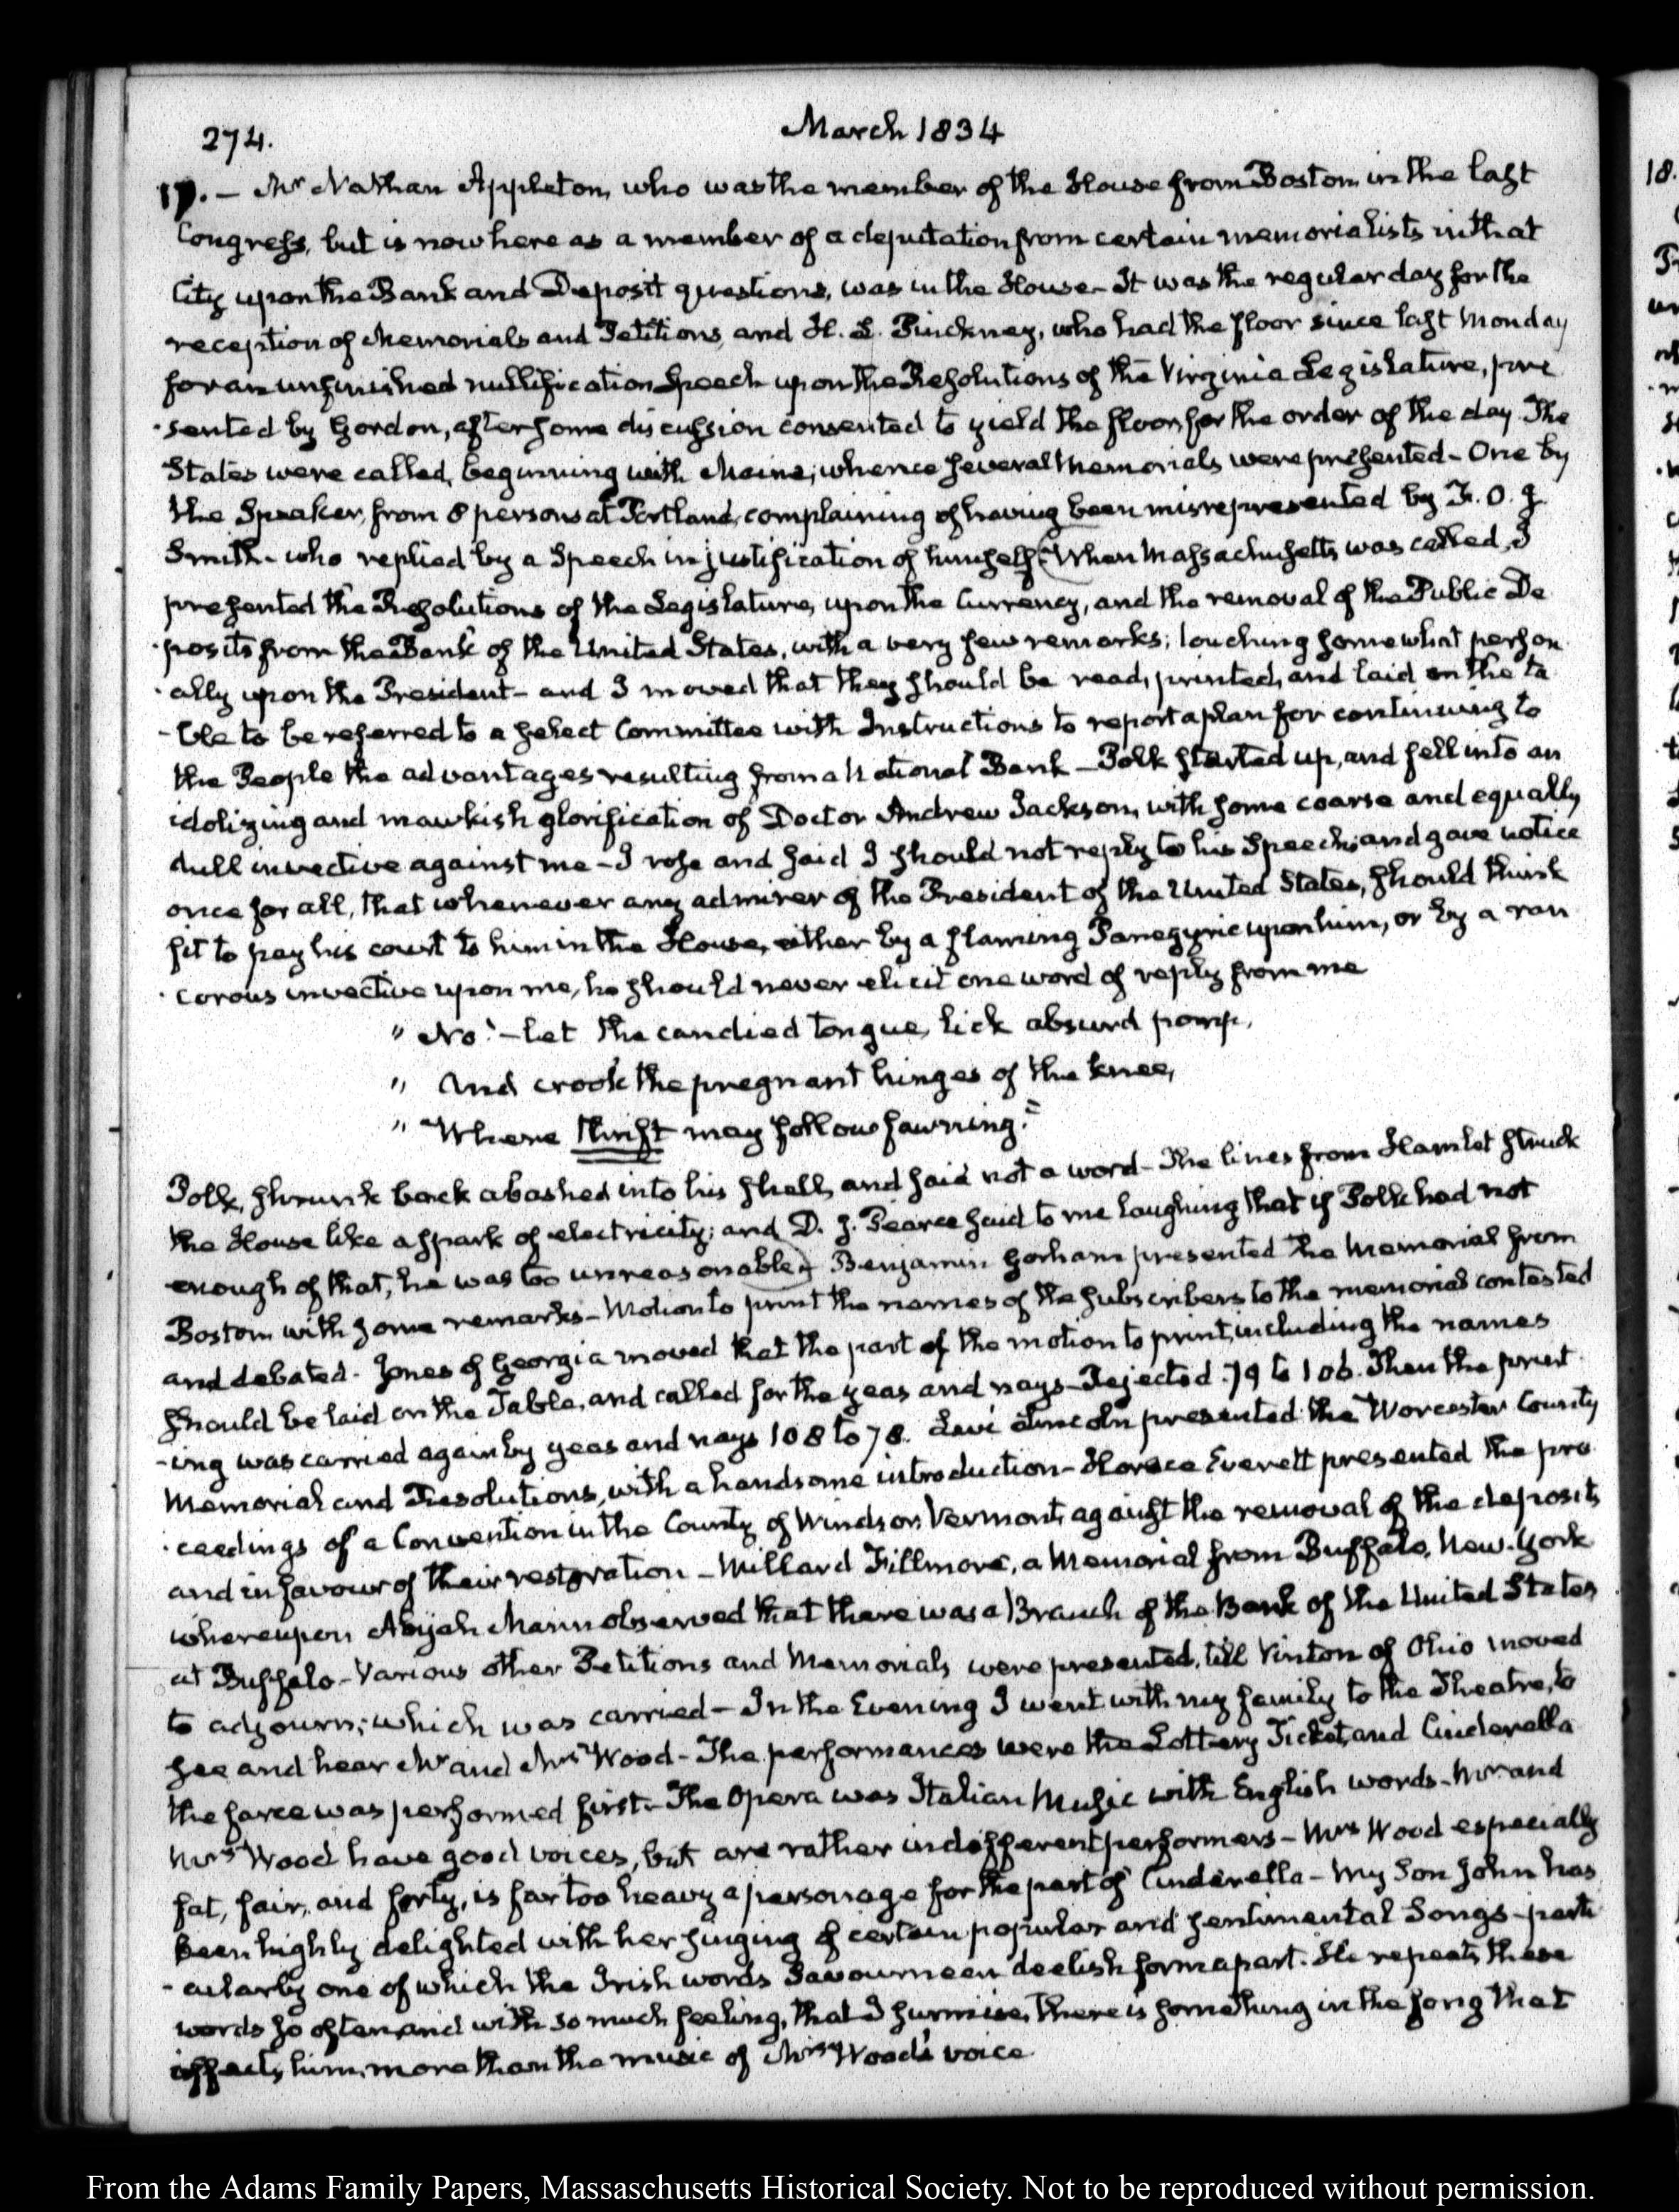 274.
March 1834
17. — Mr Nathan Appleton, who was the member of the House from Boston in the last
Congress, but is now here as a member of a deputation from certain memorialists in that
City upon the Bank and Deposit questions, was in the House — It was the regular day for the
reception of Memorials and Petitions, and H. L. Pinckney, who had the floor since last Monday
for an unfinished nullification Speech upon the Resolutions of the Virginia Legislature, pre
-sented by Gordon, after some discussion consented to yield the floor for the order of the day. The
States were called, beginning with Maine; whence several Memorials were presented — One by
the Speaker, from 8 persons at Portland, complaining of having been misrepresented by F. O. J.
Smith — who replied by a Speech in justification of himself. When Massachusetts was called, I
presented the Resolutions of the Legislature, upon the Currency, and the removal of the Public De
-posits from the Bank of the United States, with a very few remarks; touching somewhat person
-ally upon the President — and I moved that they should be read, printed, and laid on the ta
-ble to be referred to a select Committee with Instructions to report a plan for continuing to
the People the advantages resulting from a National Bank — Polk started up, and fell into an
idolizing and mawkish glorification of Doctor Andrew Jackson, with some coarse and equally
dull invective against me — I rose and said I should not reply to his Speech; and gave notice
once for all, that whenever any admirer of the President of the United States, should think
fit to pay his court to him in the House, either by a flaming Panegyric upon him, or by a ran
-corous invective upon me, he should never elicit one word of reply from me
" No! — let the candied tongue, lick absurd pomp,
" And crook the pregnant hinges of the knee,
" Where thrift may follow fawning."
Polk, shrunk back abashed into his shell, and said not a word — The lines from Hamlet struck
the House like a spark of electricity; and D. J. Pearce said to me laughing that if Polk had not
enough of that, he was too unreasonable. Benjamin Gorham presented the Memorial from
Boston with some remarks — Motion to print the names of the subscribers to the memorial contested
and debated. Jones of Georgia moved that the part of the motion to print, including the names
should be laid on the Table, and called for the yeas and nays — Rejected. 79 to 106. Then the print
-ing was carried again by yeas and nays 108 to 78. Levi Lincoln presented the Worcester County
Memorial and Resolutions, with a handsome introduction — Horace Everett presented the pro
-ceedings of a Convention in the County of Windsor, Vermont, against the removal of the deposits
and in favour of their restoration — Millard Fillmore, a Memorial from Buffalo, New-York
whereupon Abijah Mann observed that there was a Branch of the Bank of the United States
at Buffalo — Various other Petitions and Memorials, were presented, till Vinton of Ohio moved
to adjourn; which was carried — In the Evening I went with my family to the Theatre, to
see and hear Mr and Mrs Wood — The performances were the Lottery Ticket, and Cinderella
the farce was performed first — The Opera was Italian Music with English words — Mr and
Mrs Wood have good voices, but are rather indifferent performers — Mrs Wood especially
fat, fair, and forty, is far too heavy a personage for the part of Cinderella — My Son John has
been highly delighted with her singing of certain popular and sentimental Songs — parti
-cularly one of which the Irish words Savourneen deelish form a part. He repeats these
words so often, and with so much feeling, that I surmise, there is something in the song that
affects him, more than the music of Mrs Wood's voice
18.
From the Adams Family Papers, Massaschusetts Historical Society. Not to be reproduced without permission.